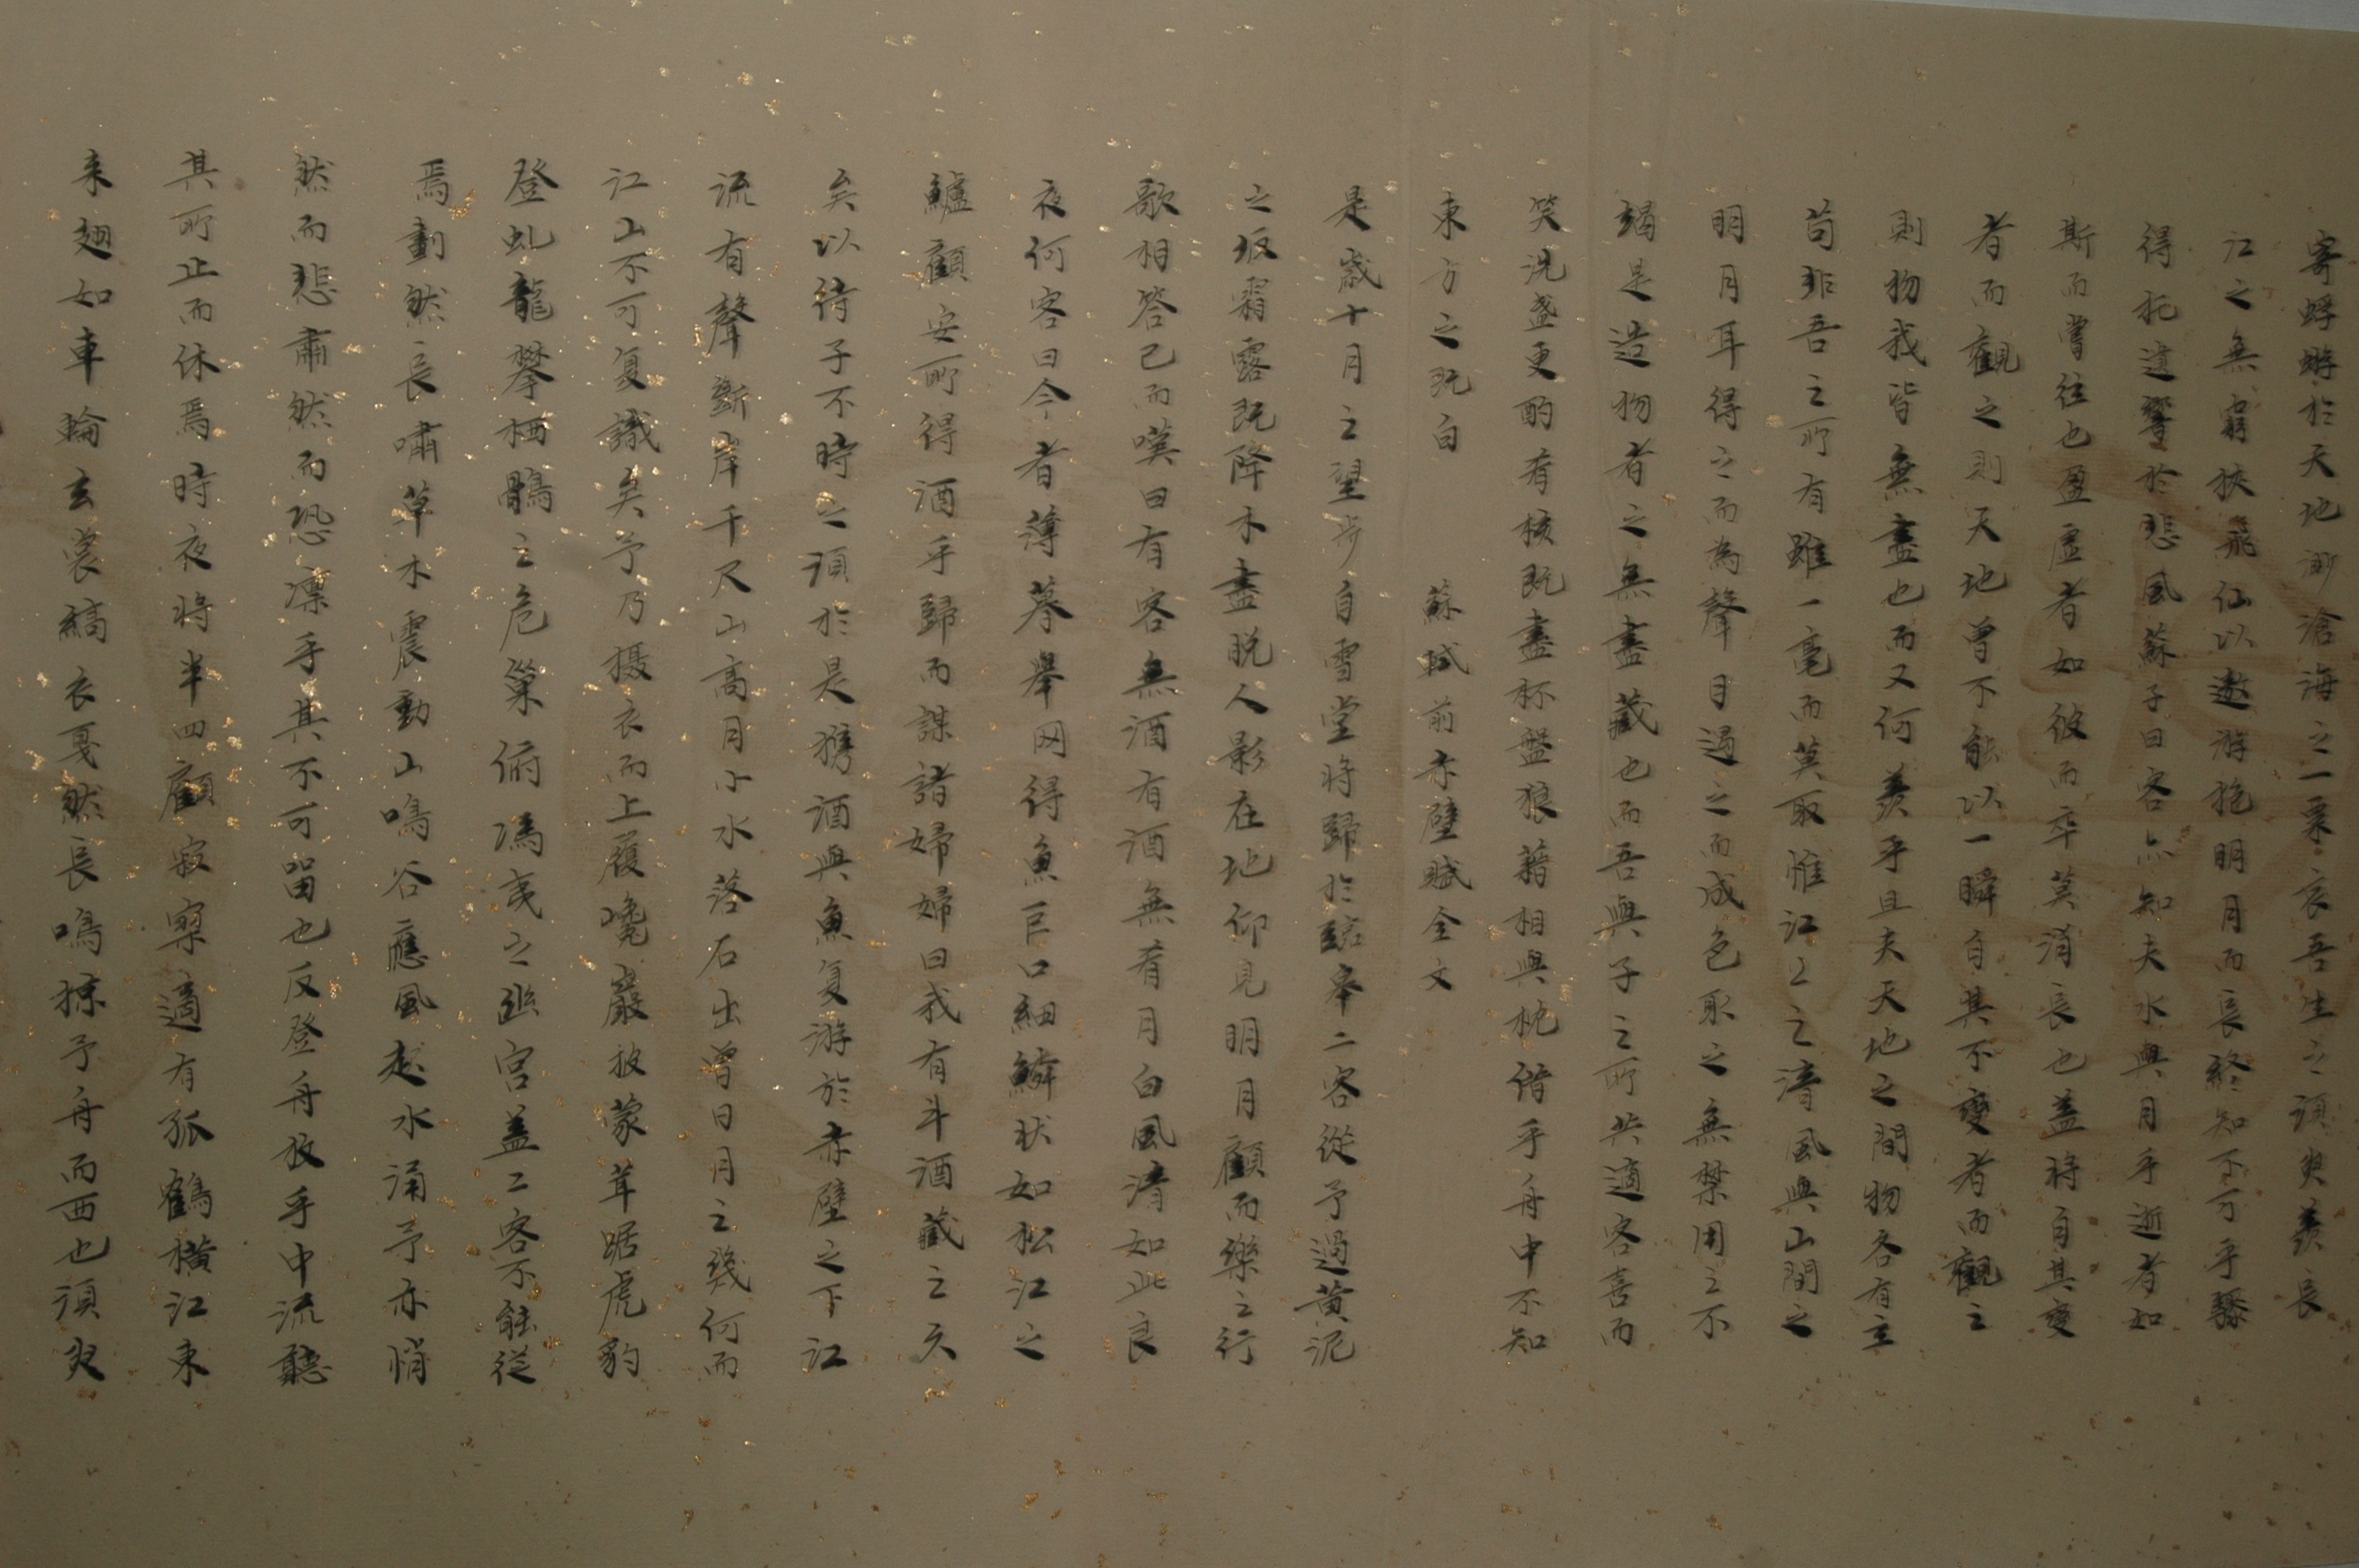 寄蜉蝣於天地渺滄海之一粟哀吾生之須臾羨長
江之無窮挾飛仙以遨遊抱明月而長終知不可乎驟
得托遺響於悲風蘇子曰客亦知夫水與月乎逝者如
斯而嘗往也盈虛者如彼而卒莫消長也蓋將自其變
者而觀之則天地曾不能以一瞬自其不變者而觀之
則物我皆無盡也而又何羨乎且夫天地之間物各有主
苟非吾之所有雖一毫而莫取惟江上之清風與山間之
明月耳得之而為聲目遇之而成色取之無禁用之不
竭是造物者之無盡藏也而吾與子之所共適客喜而
笑洗盞更酌肴核既盡杯盤狼藉相與枕借乎舟中不知
東方之既白 蘇軾前赤壁賦全文
是歲十月之望步自雪堂將歸於臨皋二客從予過黃泥
之坂霜露既降木盡脫人影在地仰見明月顧而樂之行
歌相答已而嘆曰有客無酒有酒無肴月白風清如此良
夜何客曰今者薄暮舉網得魚巨口細鱗狀如松江之
鱸顧安所得酒乎歸而謀諸婦婦曰我有斗酒藏之久
矣以待子不時之須於是攜酒與魚復游於赤壁之下江
流有聲斷岸千尺山高月小水落石出曾日月之幾何而
江山不可復識矣予乃攝衣而上履巉巖披蒙茸踞虎豹
登虬龍攀栖鶻之危巢俯馮夷之幽宮蓋二客不能從
焉劃然長嘯草木震動山鳴谷應風起水涌予亦悄
然而悲肅然而恐凜乎其不可留也反登舟放乎中流聽
其所止而休焉時夜將半四顧寂寥適有孤鶴橫江東
來翅如車輪玄裳縞衣戛然長鳴掠予舟而西也須臾